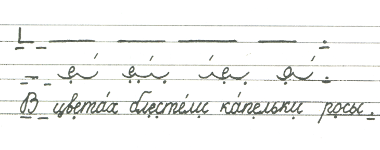 В цвета́х блесте́ли ка́пельки росы.